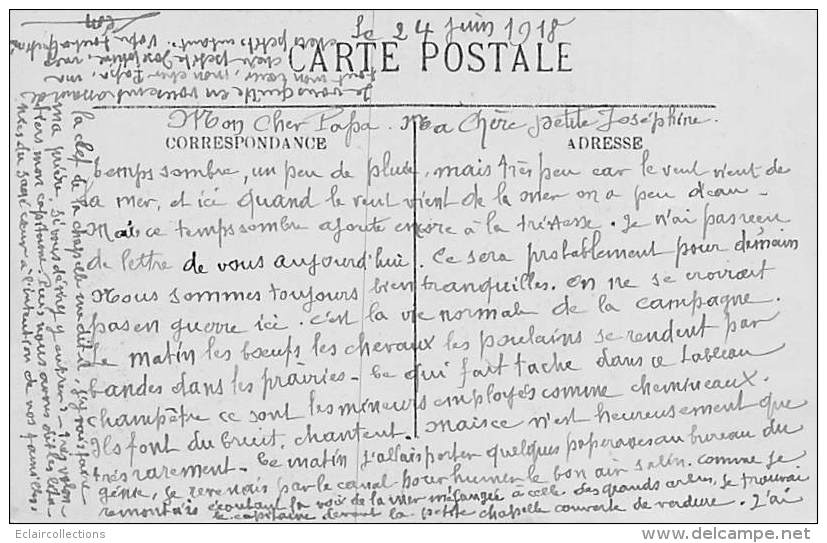 Le 24 Juin 1918
CARTE POSTALE
Mon Cher Papa. Ma Chère petite Joséphine.
CORRESPONDANCE
ADRESSE
temps sombre, un peu de pluie, mais très peu car le vent vient de
la mer, et ici quand le vent vient de la mer on a peu d'eau -
Mais ce temps sombre ajoute encore à la tristesse. Je n'ai pas reçu
de lettre de vous aujourd'hui. Ce sera probablement pour demain
Nous sommes toujours bien tranquilles. On ne se croirait
pas en guerre ici. C'est la vie normale de la campagne.
Le matin les boeufs les chevaux les poulains se rendent par
bandes dans les prairies - Ce qui fait tache dans ce tableau
champêtre ce sont les mineurs employés comme chemineaux.
Ils font du bruit, chantent. Mais ce n'est heureusement que
très rarement - Ce matin j'allais porter quelques paperasses au bureau du
génie, je revenais par le canal pour humer le bon air salin. Comme je
remontais écoutant la voix de la mer mélangée à celle des grands arbres, je trouvai
le capitaine devant la petite chapelle couverte de verdure. J'ai
la clef de la chapelle me dit-il, j'y vais faire
ma prière. Si vous désirez y entrer - très volon-
tiers mon capitaine. Puis nous avons dit les lita-
nies du Sacré coeur à l'intention de nos familles.
Je vous quitte en vous embrassant de
tout mon coeur, mon cher Papa, ma
chère petite Joséphine,
chers petits enfants. Votre
Léon
Eclaircollections
delcampe.net